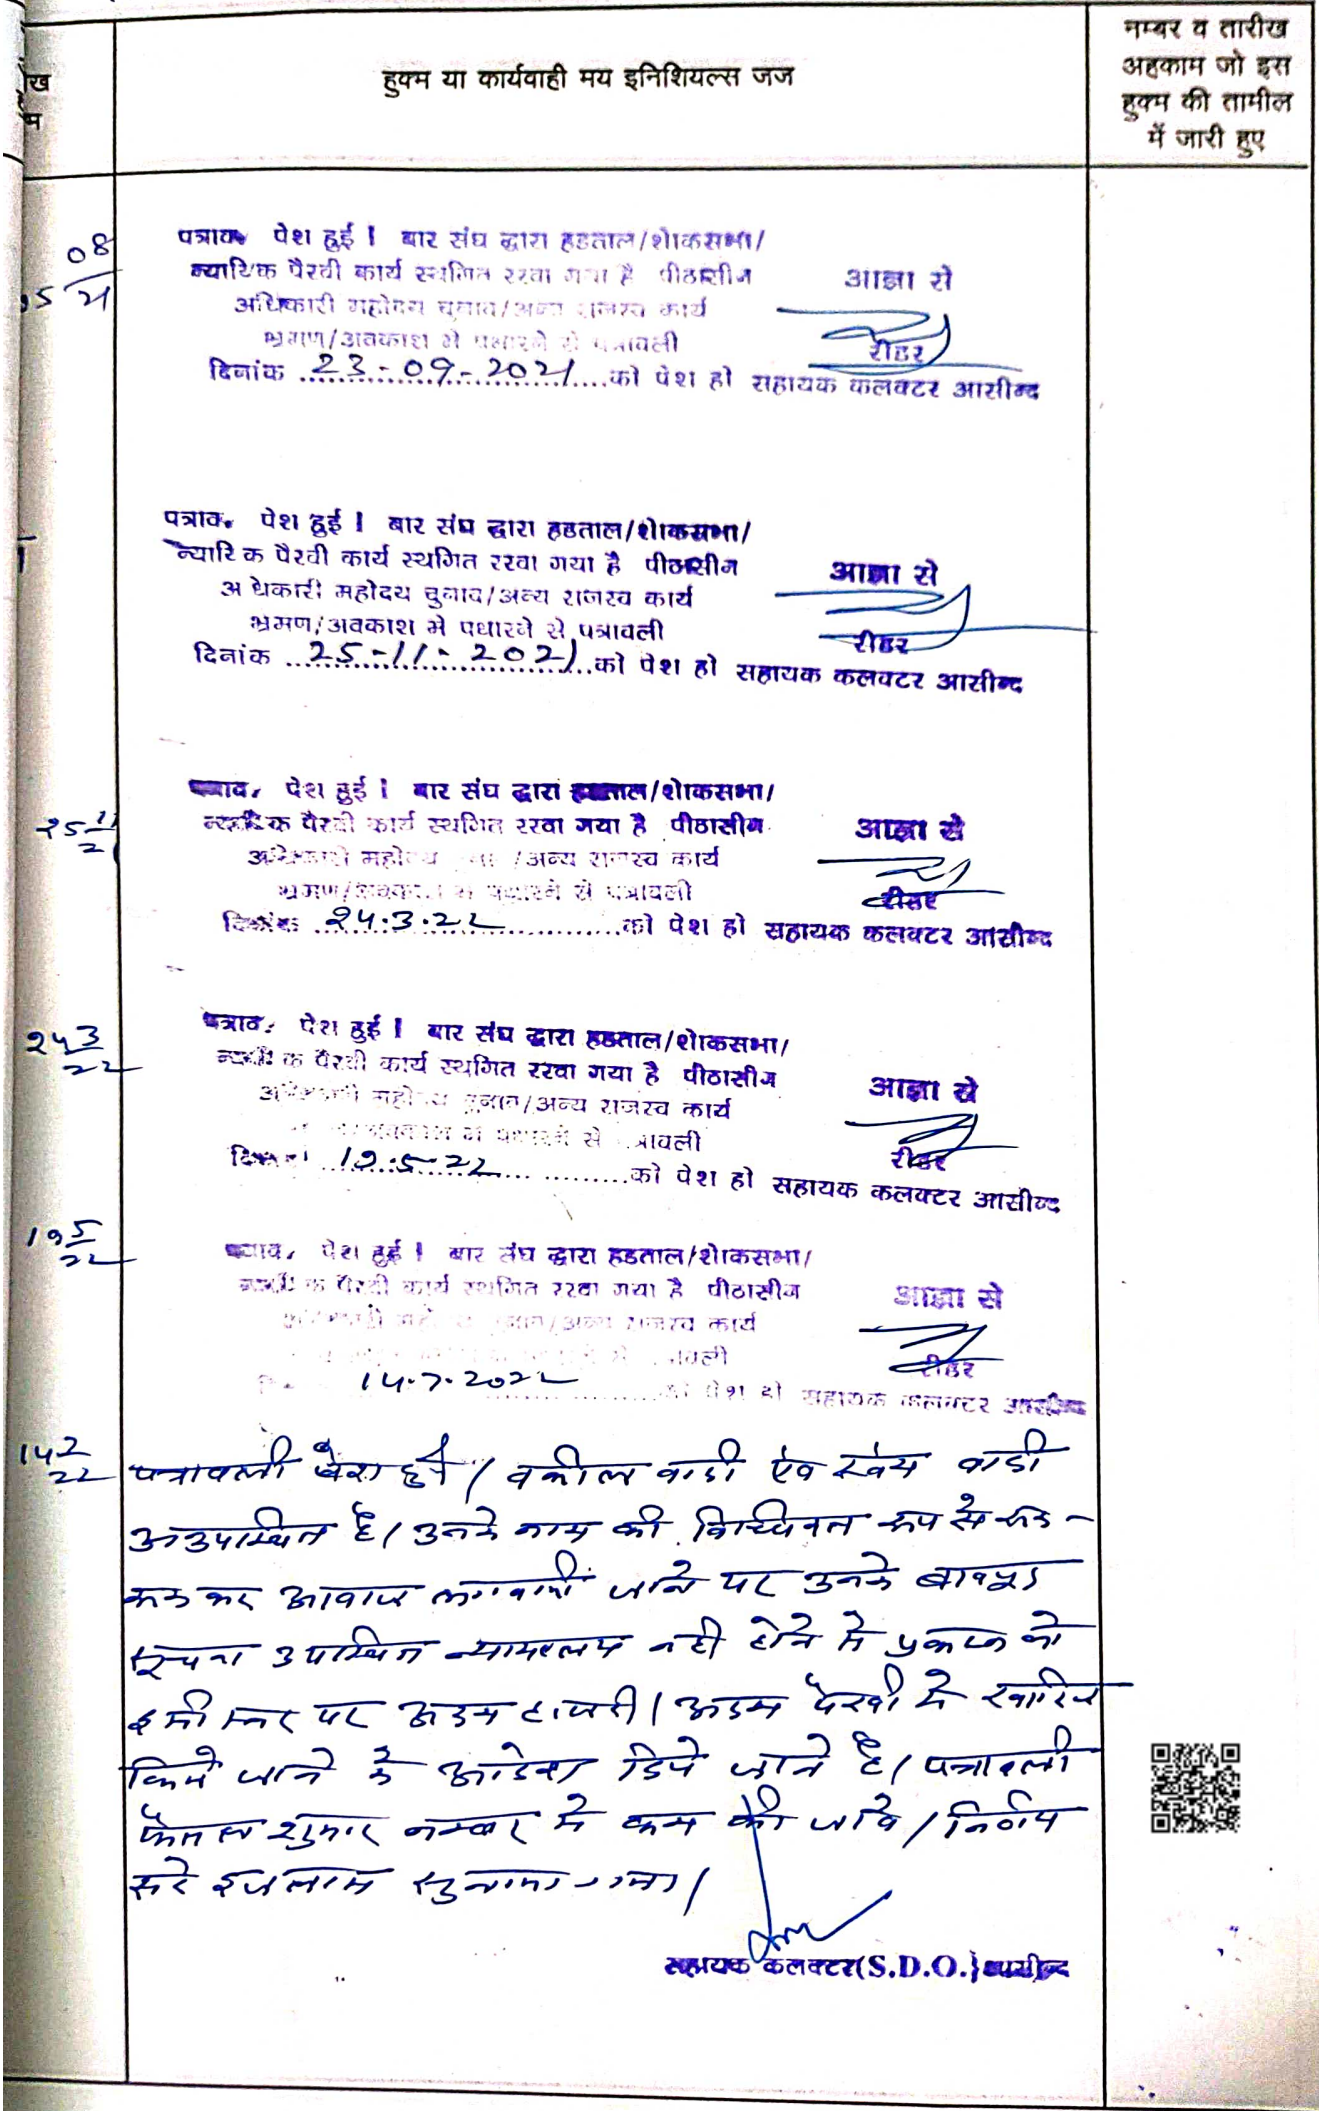 नम्बर व तारीख
अहकाम जो इस
हुक्म की तामील
में जारी हुए
हुक्म या कार्यवाही मय इनिशियल्स जज
08
21
पत्राव. पेश हुई । बार संघ द्वारा हडताल/शोकसभा/
न्यायिक पैरवी कार्य स्थगित रखा गया है पीठासीन
आज्ञा से
अधिकारी महोदय चुनाव/अन्य राजस्व कार्य
भ्रमण/अवकाश मे पधारने से पत्रावली
रीडर
दिनांक 23-09-2021 को पेश हो सहायक कलक्टर आसीन्द
पत्राव. पेश हुई । बार संघ द्वारा हडताल/शोकसभा/
न्यायिक पैरवी कार्य स्थगित रखा गया है पीठासीन
आज्ञा से
अधिकारी महोदय चुनाव/अन्य राजस्व कार्य
भ्रमण/अवकाश मे पधारने से पत्रावली
रीडर
दिनांक 25-11-2021 को पेश हो सहायक कलक्टर आसीन्द
25 11
21
पत्राव. पेश हुई । बार संघ द्वारा हडताल/शोकसभा/
न्यायिक पैरवी कार्य स्थगित रखा गया है पीठासीन
आज्ञा से
अधिकारी महोदय /अन्य राजस्व कार्य
भ्रमण/अवकाश मे पधारने से पत्रावली
रीडर
दिनांक 24.3.22 को पेश हो सहायक कलक्टर आसीन्द
24 3
22
पत्राव. पेश हुई । बार संघ द्वारा हडताल/शोकसभा/
न्यायिक पैरवी कार्य स्थगित रखा गया है पीठासीन
आज्ञा से
अधिकारी महोदय चुनाव/अन्य राजस्व कार्य
अवकाश मे पधारने से पत्रावली
रीडर
दिनांक 19.5.22 को पेश हो सहायक कलक्टर आसीन्द
19 5
22
पत्राव. पेश हुई । बार संघ द्वारा हडताल/शोकसभा/
न्यायिक पैरवी कार्य स्थगित रखा गया है पीठासीन
आज्ञा से
चुनाव/अन्य राजस्व कार्य
रीडर
14.7.2022 को पेश हो सहायक कलक्टर आसीन्द
14 7
22
पत्रावली पेश हुई । वकील वादी एंव स्वंय वादी
अनुपस्थित है । उनके नाम की विधिवत रूप से रूक-
रूक कर आवाज लगवायी जाने पर उनके बावजूद
सूचना उपस्थित न्यायालय नही होने से प्रकरण को
इसी स्तर पर अदम हाजरी / अदम पैरवी मे खारिज
किये जाने के आदेश दिये जाते है । पत्रावली
फैसल शुमार नम्बर से कम की जावे । निर्णय
सरे इजलास सुनाया गया ।
सहायक कलक्टर(S.D.O.) आसीन्द